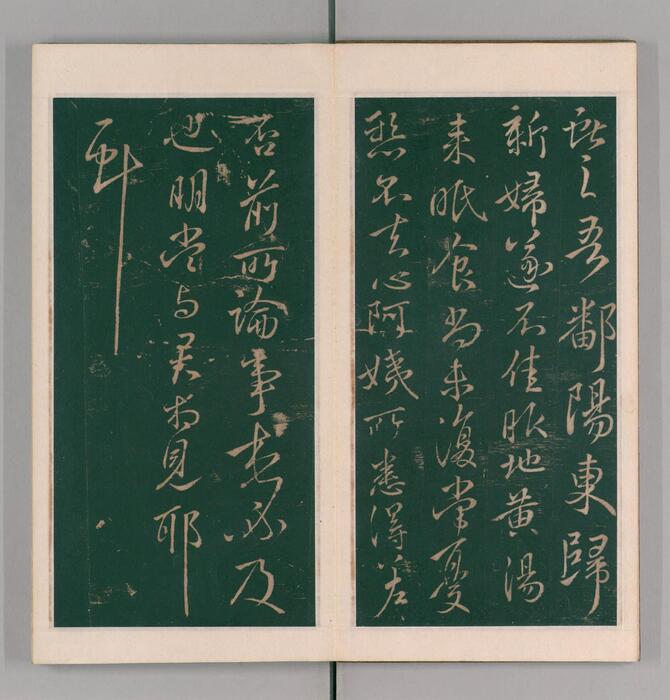 獻之吾鄱陽東歸
新婦遂不佳服地黃湯
來眠食尚未復常憂
懸不去心阿姨所患得差
否前所論事想必及
也明當與君相見耶